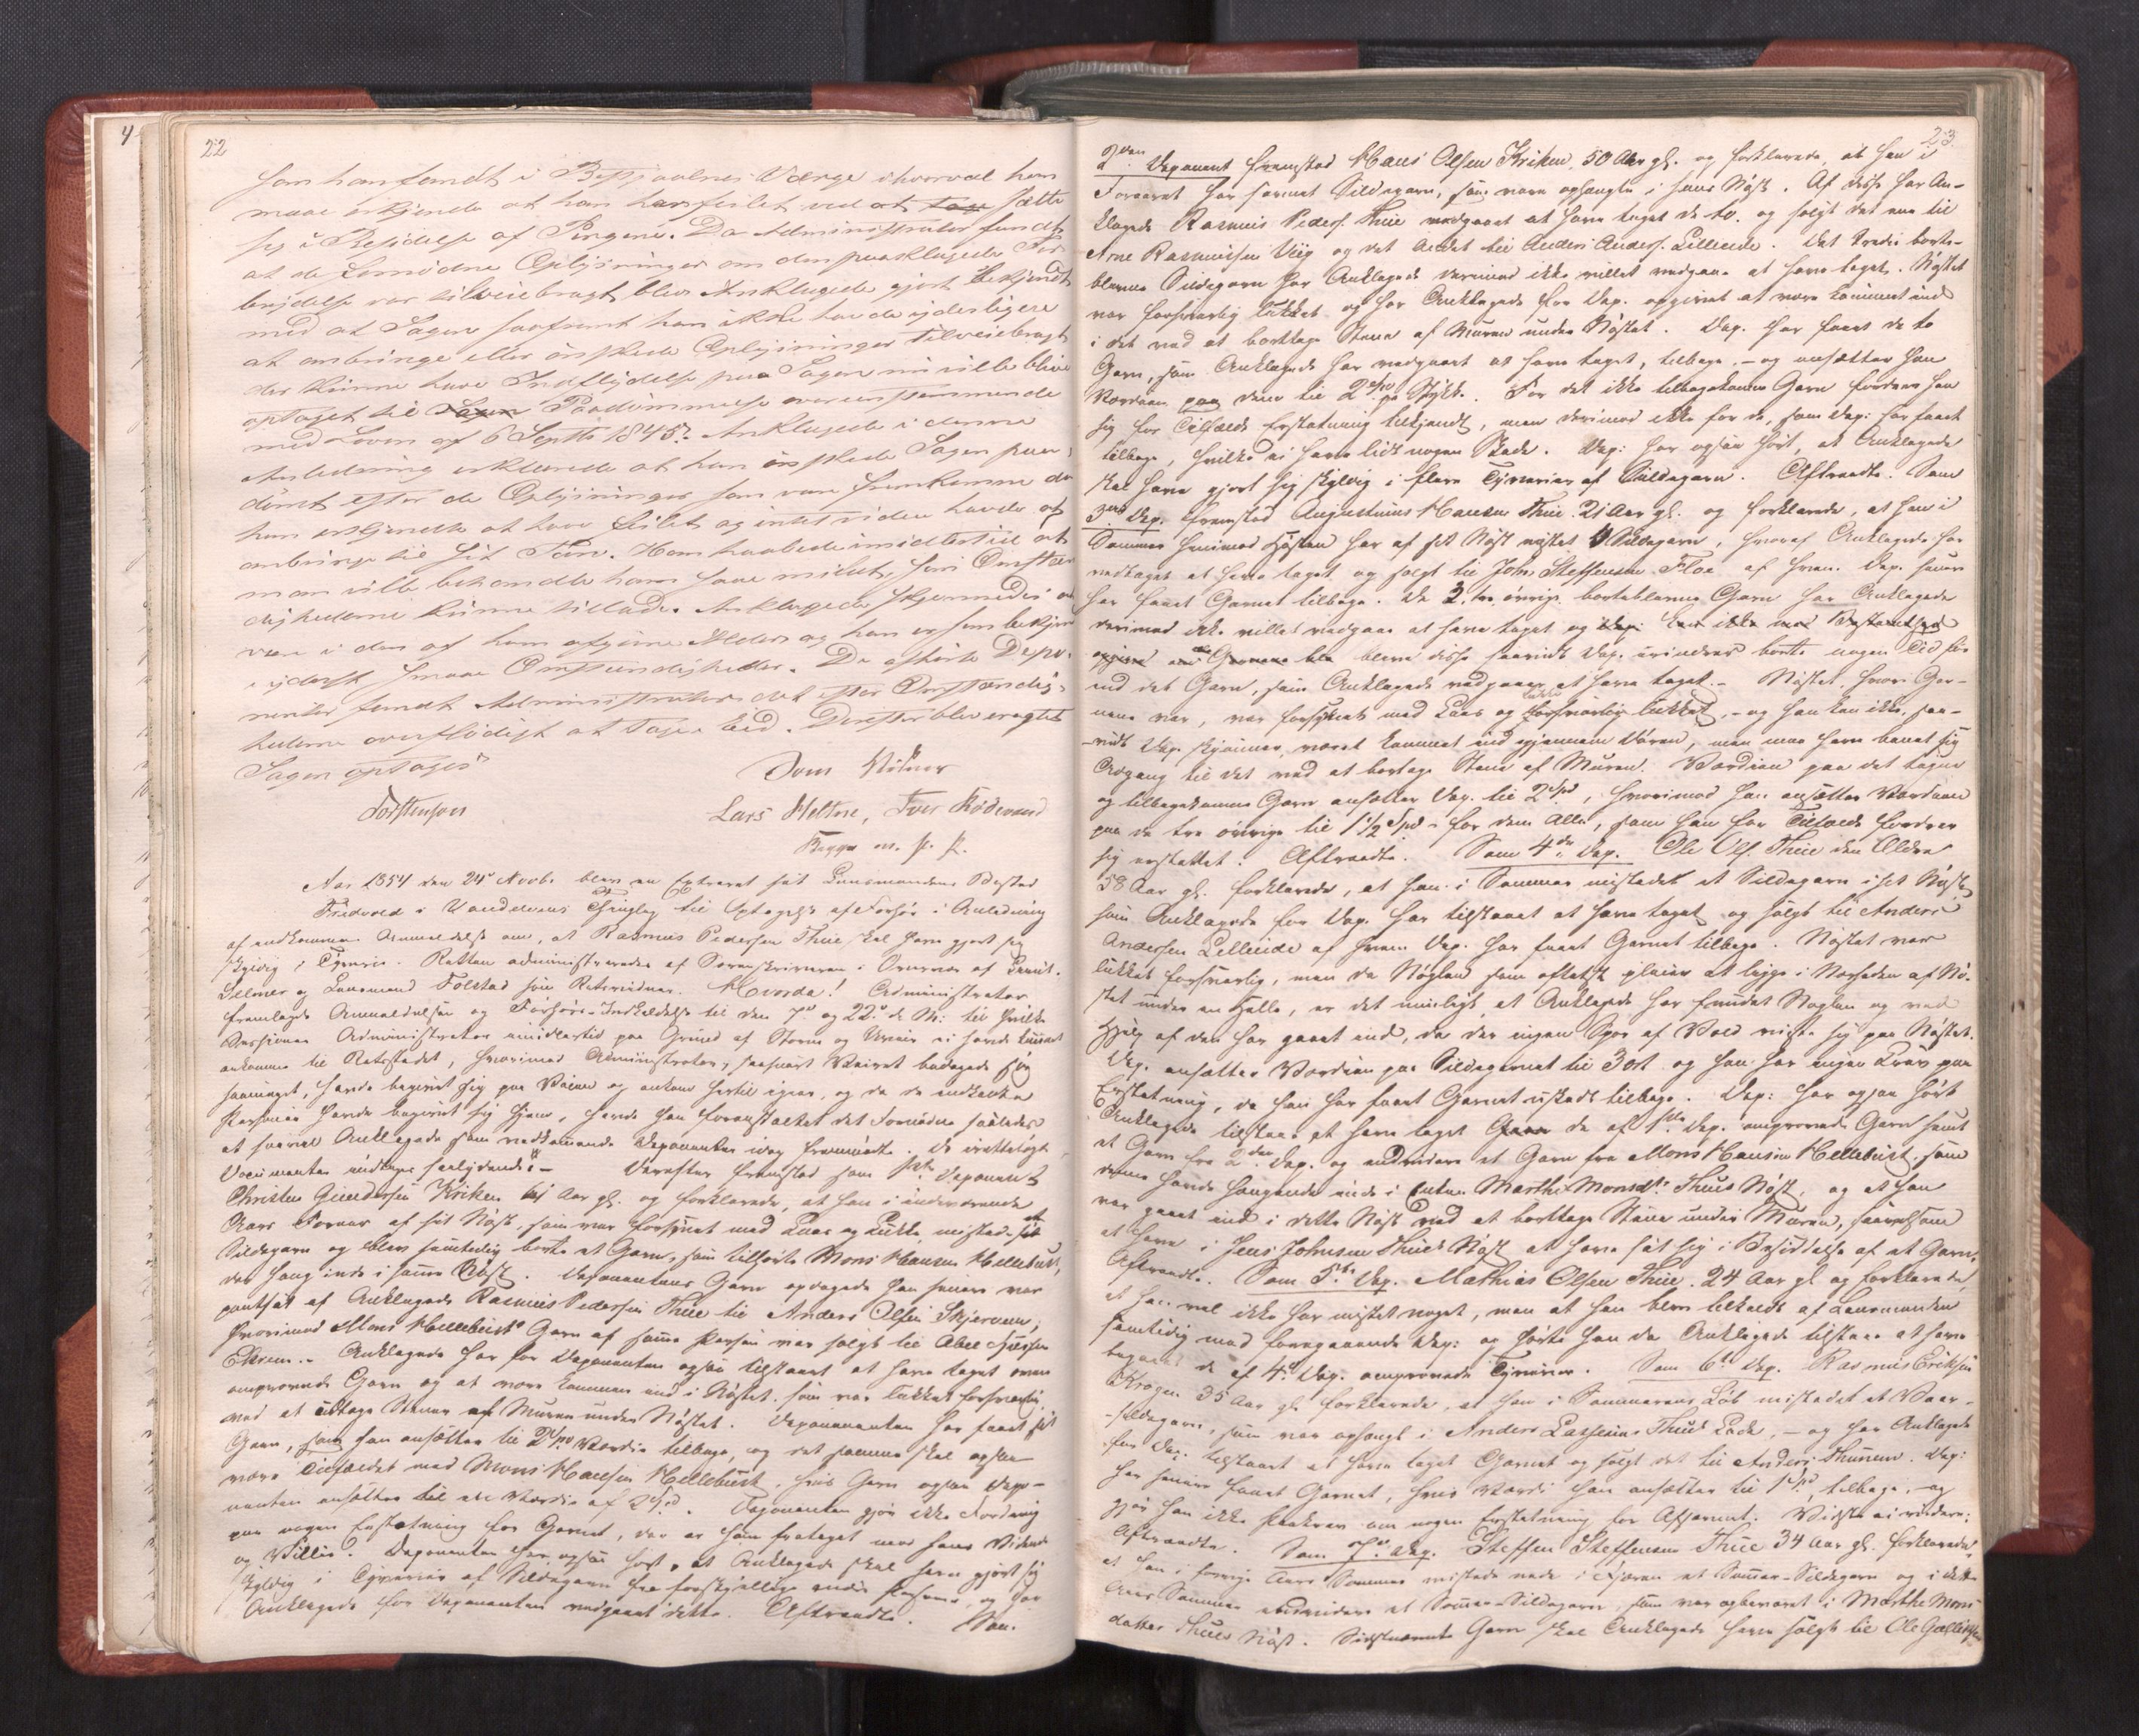 22
som han fandt i Besjaalnes Værge ihvorvel han
maae erkjende at han har feilet ved at sætte
sig i Besiddelse af Pengene. Da Administrator fandt
at de fornødne Oplysninger om den paaklagede For
brydelse var tilveiebragt blev Anklagede gjort bekjendt
med at Sagen saafremt han ikke havde yderligere
at anbringe eller ønskede Oplysninger tilveiebragt
der kunne have Indflydelse paa Sagen nu ville blive
optaget til Paadømmelse overensstemmende
med Loven af 6 Septbr 1845. Anklagede i denne
Anledning erklærede at han ønskede Sagen paa-
dømt efter de Oplysninger som vare fremkomne da
han erkjendte at have feilet og intet videre havde at
anbringe til sit Tarv. Han haabede imidlertid at
man ville behandle ham saa mildt, som Omstæn
dighederne kunne tillade. Anklagede skjønnedes at
være i den af ham opgivne Alder og han er som bekjendt
i yderst smaae Omstændigheder. De afhørte Depo-
nenter fandt Administrator det efter Omstændig-
hederne overflødigt at tage i Eed. Derefter blev eragtet
Sagen optages
Dom
Lars Heltne, Iver Rødevand
Begge m. p. P.
Aar 1854 den 24 Novbr. blev en Extraret sat Lensmandens Bosted
Fredvold i Vanelvens Thinglag til Optagelse af Forhør i Anledning
af indkommen Anmeldelse om, at Rasmus Pedersen Thue skal have gjort sig
skyldig i Tyverie. Retten administreredes af Sorenskriveren i Overvær af
Selmer og Lensmand Folstad som Retsvidner. Hvorda! Administrator
fremlagde Anmeldelsen og Forhørs-Indkaldelse til den 7de og 22de d. M: til hvilke
Sessioner Administrator imidlertid paa Grund af Storm og Uveir ei havde kunnet
ankomme til Retsstedet, hvorimod Administrator, saasnart Veiret bedagede sig
saameget, havde begivet sig paa Veien og ankom hertil igaar, og da de indkaldte
Personer havde begivet sig hjem, havde han foranstaltet det Fornødne saaledes
at saavel Anklagede som vedkommende Deponenter idag fremmødte. De irettelagte
Documenter indtages saalydende: –
Derefter fremstod som 1ste Deponent
Christen Gundersen Kriken 61 Aar gl. og forklarede, at han i indeværende
Aars Foraar af sit Nøst, som var forsynet med Laas og Lukke, mistede et
Sildegarn og blev samtidig borte et Garn, som tilhørte Mons Hansen Hellebust,
der hang inde i samme Nøst. Deponentens Garn opdagede han senere var
pantsat af Anklagede Rasmus Pedersen Thue til Anders Olsen Skjervem,
hvorimod Mons Hellebust's Garn af samme Person var solgt til Abel
Ekrem. – Anklagede har for Deponenten ogsaa tilstaaet at have taget oven
omprovede Garn og at være kommen ind i Nøstet, som var lukket forsvarlig,
ved at udtage Stene af Muren under Nøstet. Deponenten har faaet sit
Garn, som han ansætter til 2 Spd Værdie tilbage, og det samme skal ogsaa
være Tilfældet med Mons Hansen Hellebust, hvis Garn ogsaa Depo-
nenten ansætter til en Værdie af 2 Spd. Deponenten gjør ikke Fordring
paa nogen Erstatning for Garnet, der er ham frataget mod hans Vidende
og Villie. Deponenten har ogsaa hørt, at Anklagede skal have gjort sig
skyldig i Tyverier af Sildegarn fra forskjellige andre Personer, og har
Anklagede for Deponenten vedgaaet dette. Aftraadte.
Som
23
2den Deponent fremstod Hans Olsen Kriken, 50 Aar gl. og forklarede, at han i
Foraaret har savnet Sildegarn, som vare ophængte i hans Nøst. Af disse har An-
klagede Rasmus Peders. Thue vedgaaet at have taget de to. og solgt det ene til
Arne Rasmussen Viig og det Andet til Anders Anders. Lilleeide. Det tredie borte-
blevne Sildegarn har Anklagede derimod ikke villet vedgaae at have taget. Nøstet
var forsvarlig lukket og har Anklagede for Dep. opgivet at være kommet ind
i det ved at borttage Stene af Muren under Nøstet. Dep. har faaet de to
Garn, som Anklagede har vedgaaet at have taget, tilbage, – og ansætter han
Værdien paa dem til 2 Spd pr Stykke. For det ikke tilbagekomne Garn fordrer han
sig for Tilfælde Erstatning tilkjendt, men derimod ikke for de, som Dep: har faaet
tilbage, hvilke ei have lidt nogen Skade. Dep: har ogsaa hørt, at Anklagede
skal have gjort sig skyldig i flere Tyverier af Sildegarn. Aftraadte. Som
3die Dep. fremstod Augustinus Hansen Thue 21 Aar gl. og forklarede, at han i
Sommer henimod Høsten har af sit Nøst mistet 4 Sildegarn, hvoraf Anklagede har
vedtaget at have taget og solgt til Johs Steffensen Floe af hvem Dep. senere
har faaet Garnet tilbage. De 3. øvrige borteblevne Garn har Anklagede
derimod ikke villet vedgaae at have taget og
blev disse saavidt Dep. erindrer borte nogen Tid før
end det Garn, som Anklagede vedgaaer at have taget. – Nøstet, hvor Gar-
nene var, var forsynet med Laas og forsvarlig lukket, – og han kan ikke, saa-
vidt Dep. skjønner, været kommet ind gjennem Døren, men maa have banet sig
Adgang til det ved at borttage Stene af Muren. Værdien paa det tagne
og tilbagekomne Garn ansætter Dep. til 2 Spd, hvorimod han ansætter Værdien
paa de tre øvrige til 1 1/2 Spd – for dem Alle, som han for Tilfælde fordrer
sig erstattet. Aftraadte. Som 4de Dep. Ole Ols. Thue den Ældre
58 Aar gl. forklarede, at han i Sommer mistede et Sildegarn i sit Nøst
som Anklagede for Dep. har tilstaaet at have taget og solgt til Anders
Andersen Lilleeide af hvem Dep. har faaet Garnet tilbage. Nøstet var
lukket forsvarlig, men da Nøglen, som oftest pleier at ligge i Nærheden af Nø-
stet under en Helle, er det muligt, at Anklagede har fundet Nøglen og ved
Hjelp af den har gaaet ind, da der ingen Spor af Vold viste sig paa Nøstet.
Dep. ansætter Værdien paa Sildegarnet til 3 ort og han har ingen Krav paa
Erstatning, da han har faaet Garnet uskadt tilbage. Dep: har ogsaa hørt
Anklagede tilstaae at have taget de af 1ste Dep. omprovede Garn samt
et Garn fra 2den Dep. og endvidere et Garn fra Mons Hansen Hellebust, som
denne havde hængende inde i Enken Marthe Monsdtr Thues Nøst, og at han
var gaaet ind i dette Nøst ved at borttage Stene under Muren, saavelsom
at have i Jens Johnsen Thues Nøst at have sat sig i Besiddelse af et Garn.
Aftraadte. Som 5te Dep. Mathias Olsen Thue. 24 Aar gl og forklarede,
at han vel ikke har mistet noget, men at han blev tilkaldt af Lensmanden
samtidig med foregaaende Dep: og hørte han da Anklagede tilstaae at have
begaaet de af 4de Dep. omprovede Tyverier. Som 6te Dep. Rasmus Eriksen
Krogen 35 Aar gl. forklarede, at han i Sommerens Løb mistede et Vaar-
sildegarn, som var ophængt i Anders Lassesens Thues Lade, – og har Anklagede
for Dep: tilstaaet at have taget Garnet og solgt det til Anders Thunem. Dep:
har senere faaet Garnet, hvis Værdi han ansætter til 1 Spd, tilbage, – og
gjør han ikke Paakrav om nogen Erstatning for Afsavnet. Vidste ei videre.
Aftraadte. Som 7de Dep. Steffen Steffensen Thue 34 Aar gl. forklarede,
at han i forrige Aars Sommer mistede nede i Fjæren et Sommer-Sildegarn og i dette
Aars Sommer endvidere et Sommer-Sildegarn, som var opbevaret i Marthe Mons
datter Thues Nøst. Sidstnævnte Garn skal Anklagede have solgt til Ole